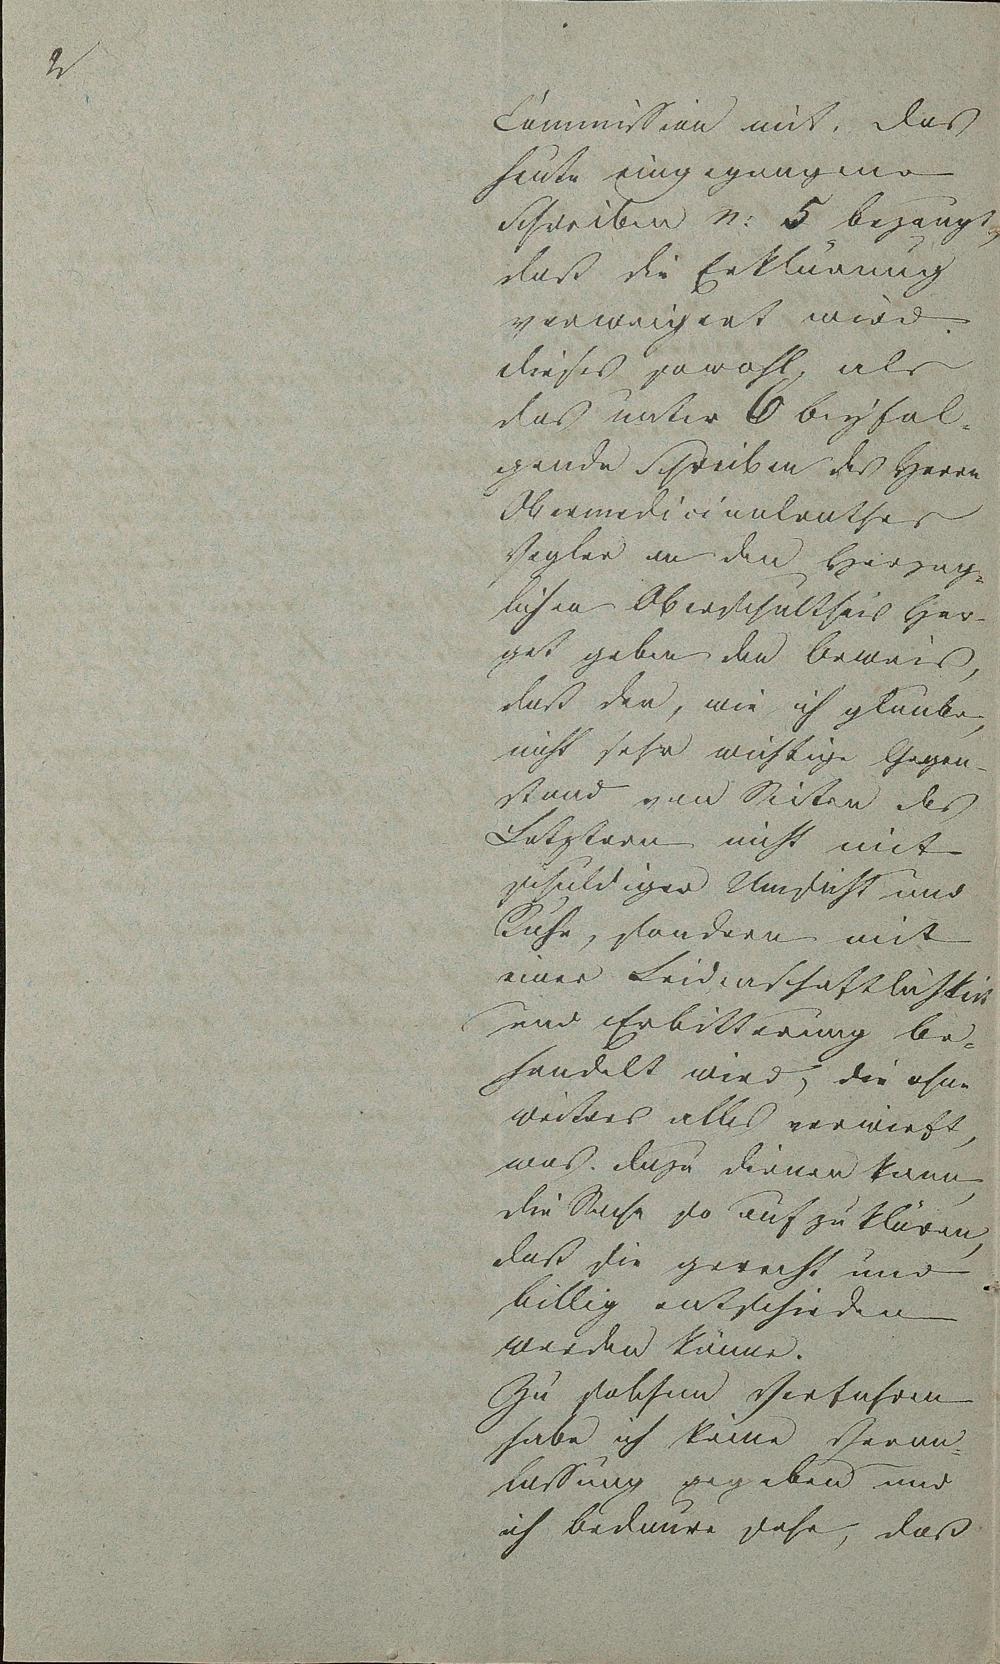 2
Commission mit. Das
heute eingegangene
Schreiben N: 5 bezeugt,
daß die Erklärung
verweigert wird.
dieses sowohl, als
das unter 6 beyfol-
gende Schreiben des Herrn
Obermedicinalrathes
Vogler an den Herzog-
lichen Oberschultheis Her-
get geben den Beweis,
daß der, wie ich glaube,
nicht sehr wichtige Gegen-
stand von Seiten des
Letztern nicht mit
schuldiger Umsicht und
Ruhe, sondern mit
einer Leidenschaftlichkeit
und Erbitterung be-
handelt wird, die ohne
weiteres alles verwirft,
was dazu dienen kann,
die Sache so aufzuklären,
daß sie gerecht und
billig entschieden
werden könne.
Zu solchem Verfahren
habe ich keine Veran-
lassung gegeben und
ich bedaure sehr, daß